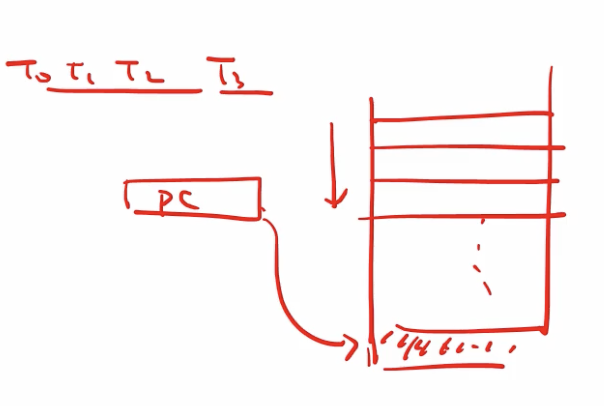 T₀ T₁ T₂ T₃
PC